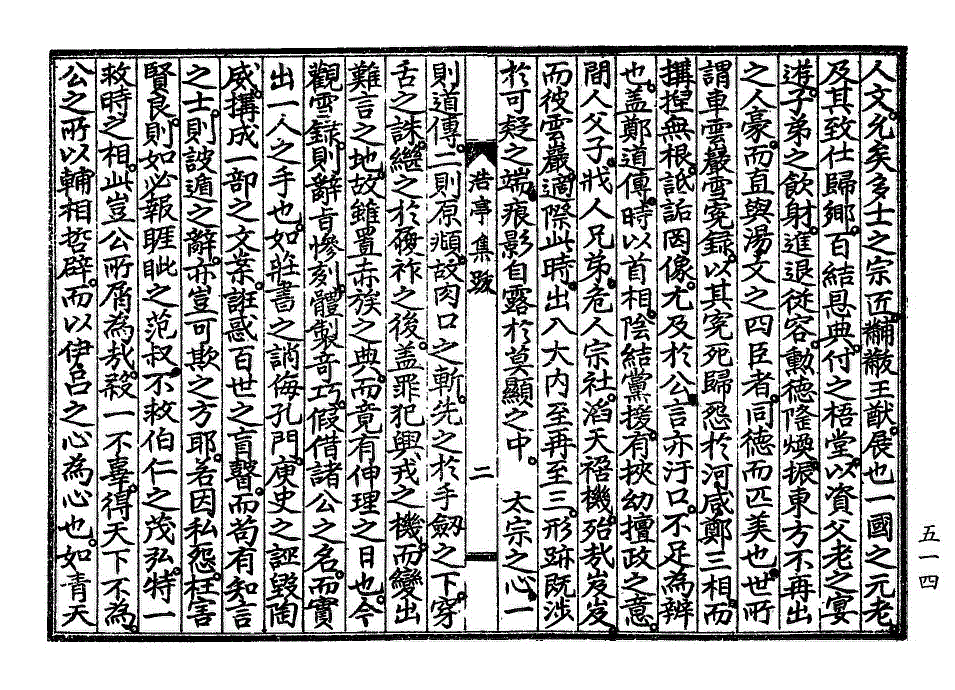 人文。允矣多士之宗匠。黼黻王猷。展也一國之元老。
及其致仕歸鄕。百結恩典。付之梧堂。以資父老之宴
遊。子弟之飮射。進退從容。勳德隆煥。振東方不再出
之人豪。而直與湯文之四臣者。同德而匹美也。世所
謂車雲巖雪寃錄。以其寃死歸怨於河咸鄭三相。而
搆捏無根。詆詬罔像。尤及於公。言亦汙口。不足爲辨
也。盖鄭道傳。時以首相。陰結黨援。有挾幼擅政之意。
間人父子。戕人兄弟。危人宗社。滔天禍機。殆哉岌岌。
而彼雲巖。適際此時。出入大內至再至三。形跡旣涉
於可疑之端。痕影自露於莫顯之中。 太宗之心。一
浩亭集跋 二
則道傳。二則原頫。故肉口之斬。先之於手劒之下。穿
舌之誅。繼之於殯祚之後。盖罪犯興戎之機。而變出
難言之地。故雖置赤族之典。而竟有伸理之日也。今
觀雪錄。則辭旨慘刻。體製奇巧。假借諸公之名。而實
出一人之手也。如莊書之誚侮孔門。庾史之誣毁陶
威。搆成一部之文案。誑惑百世之盲聾。而苟有知言
之士。則詖遁之辭。亦豈可欺之方耶。若因私怨。枉害
賢良。則如必報睚眦之范叔。不救伯仁之茂弘。特一
救時之相。此豈公所屑爲哉。殺一不辜。得天下不爲。
公之所以輔相哲辟。而以伊呂之心爲心也。如靑天
五一四